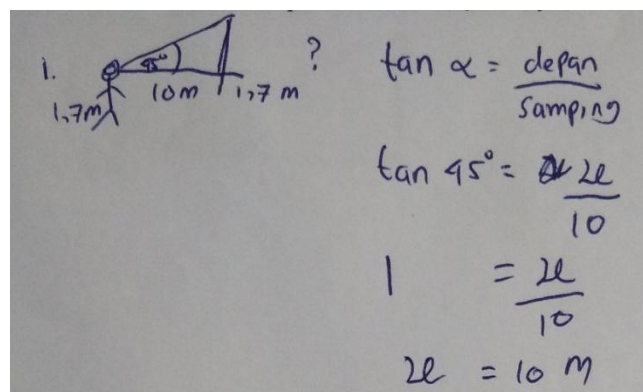 1.
45°
?
1,7m
10m
1,7 m
tan α = depan
samping
tan 45° = x
10
1 = x
10
x = 10 m